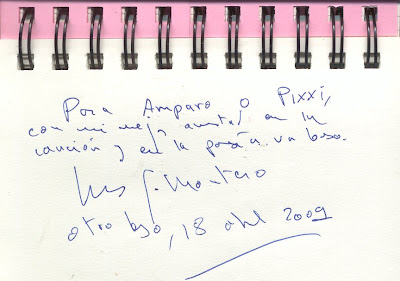 Para Amparo o Pixxi,
con mi mejor amistad en la
canción y en la poesía. un beso.
Luis G. Montero
otro beso, 18 abril 2009